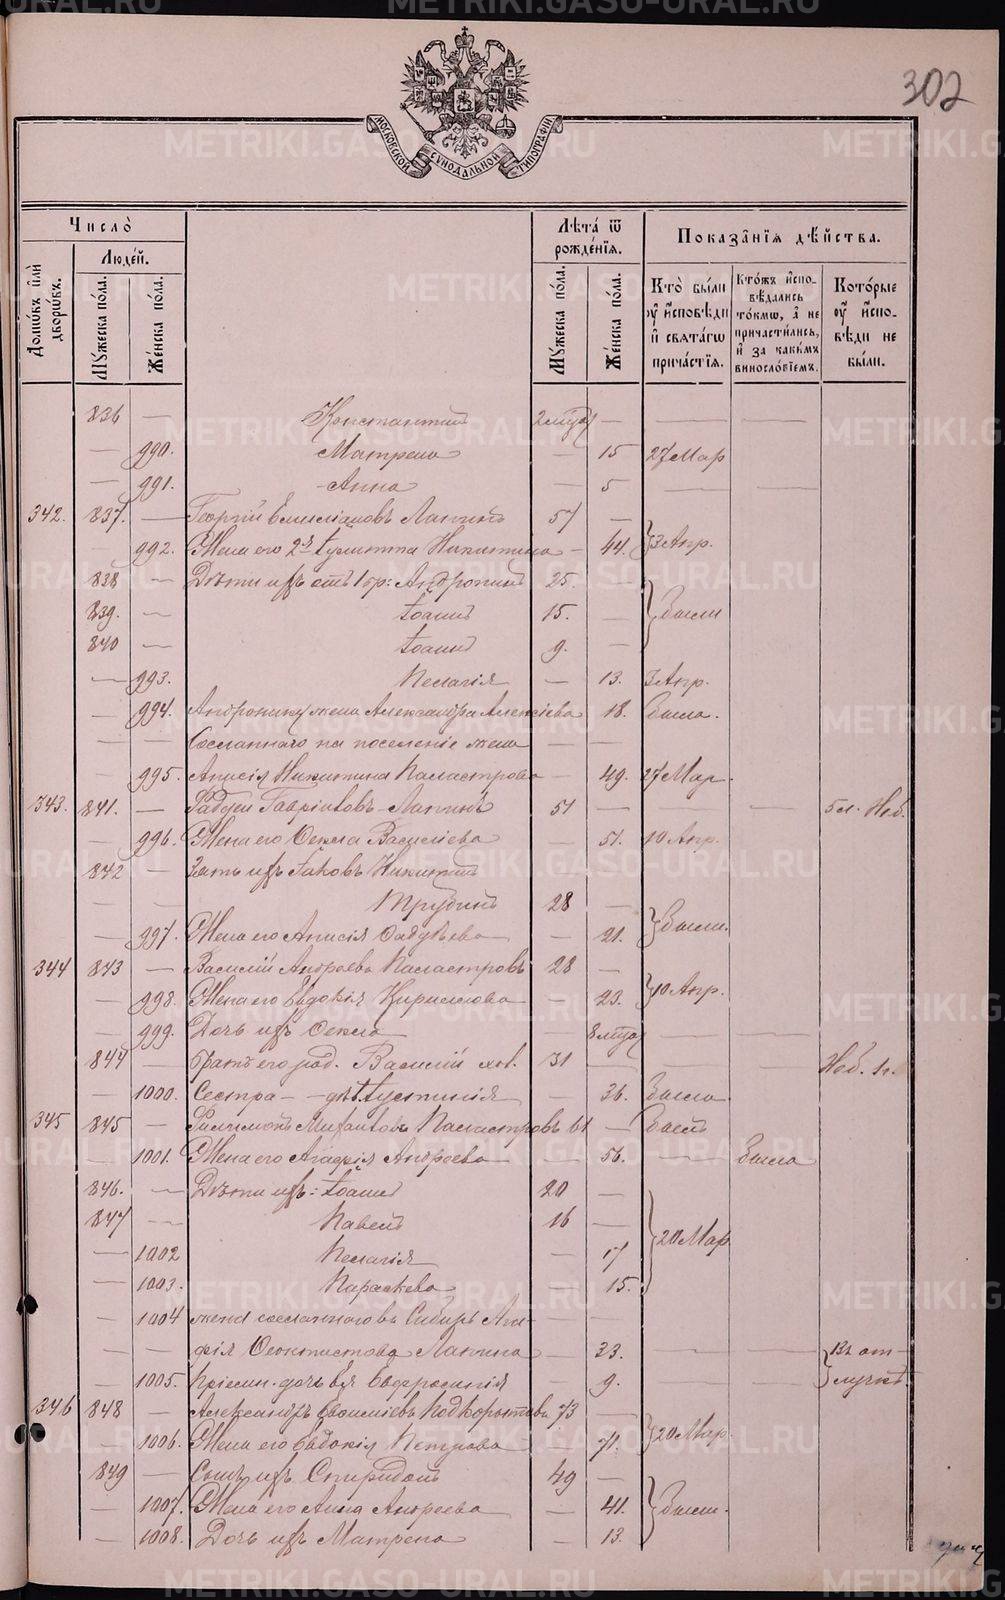 302
МОСКОВСКОЙ СУНОДАЛЬНОЙ ТИПОГРАФІИ
Число̀
Люде́й.
Домѡ́въ и҆лѝ дворѡ́въ.
Мꙋ́жеска по́ла.
Же́нска по́ла.
Лѣ̑та ѿ рожде́нїѧ.
Мꙋ́жеска по́ла.
Же́нска по́ла.
Показа̑нїѧ дѣ́йства.
Кто̀ бы́ли ᲂу҆ и҆сповѣ́ди и҆ свѧта́гѡ прича́стїѧ.
Кто́жъ и҆спо- вѣ́дались то́кмѡ, а҆ не причасти́лись, и҆ за каки́мъ виносло́вїемъ.
Кото́рые ᲂу҆ и҆спо- вѣ́ди не бы́ли.
836 — Константинъ 2 мѣс
— 990. Матрена — 15 27 Мар
— 991. Анна — 5
342. 837. — Георгій Емиліановъ Лапинъ 57 —
992. Жена его 2я Іулитта Никитина — 44. 3 Апр.
838 — Дѣти ихъ отъ 1 бр: Андроникъ 25. —
839. — Іоаннъ 15. — были
840 — Іоаннъ 9. —
— 993. Пелагія — 13. 3 Апр.
— 994. Андроника жена Александра Алексіева 18. Была.
— — Сосланнаго на поселеніе жена — —
— 995. Анисія Никитина Паластрова — 49. 27 Мар.
343. 841. — Фаддей Гавріиловъ Лапинъ 51 — Неб.
— 996. Жена его Ѳекла Василіева — 51. 10 Апр.
842 — Зять ихъ Іаковъ Никитинъ
— — Трубинъ 28 —
— 997. Жена его Анисія Фадѣева — 21. Были.
344 843 — Василій Андреевъ Паластровъ 28 —
— 998. Жена его Евдокія Кириллова — 23. 10 Апр.
— 999. Дочь ихъ Ѳекла — 8 мѣс
844 — Братъ его род. Василій хол. 31 — Неб. 1 г.
— 1000. Сестра — дѣв. Іустинія — 36. Была.
345 845 — Филимонъ Михаиловъ Паластровъ 61 — Былъ
— 1001. Жена его Агафія Андреева — 56. — Была
846. — Дѣти ихъ: Іоаннъ 20 —
847 — Павелъ 16 —
— 1002 Пелагія — 17 20 Мар
— 1003. Параскева — 15.
— 1004 жена сосланнаго въ Сибирь Ага-
— — фія Ѳеоктистова Лапина — 33. — — Въ от-
— 1005. дочь ея Евфросинія — 9. лучкѣ.
346 848 — Александръ Василіевъ Подкорытовъ 73 —
— 1006. Жена его Евдокія Петрова — 71. 20 Мар.
849 — Сынъ ихъ Спиридонъ 49 —
— 1007. Жена его Анна Андреева — 41. Были.
— 1008. Дочь ихъ Матрена — 13.
METRIKI.GASO-URAL.RU